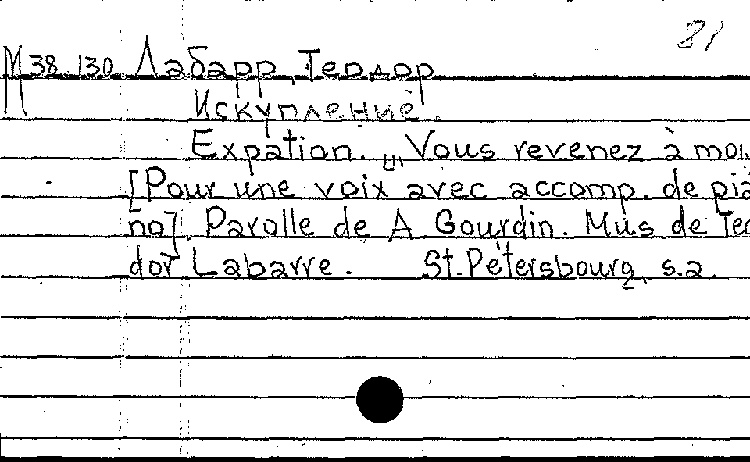 81
М 38.130 Лабарр, Теодор
Искупление.
Expation. „Vous revenez à moi
[Pour une voix avec accomp. de pia
no]. Parolle de A Gourdin. Mus de Teo
dor Labarre. St. Petersbourg, s.a.